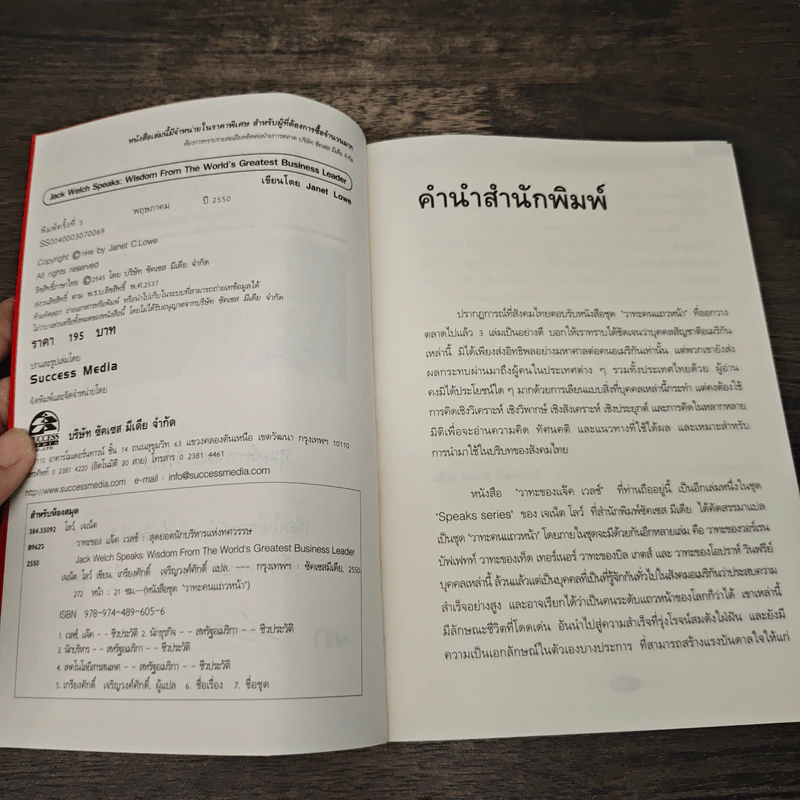 หนังสือเล่มนี้มีจำหน่ายในราคาพิเศษ สำหรับผู้ที่ต้องการซื้อจำนวนมาก
ต้องการทราบรายละเอียดติดต่อฝ่ายการตลาด บริษัท ซัคเซส มีเดีย จำกัด
Jack Welch Speaks: Wisdom From The World's Greatest Business Leader
เขียนโดย Janet Lowe
พิมพ์ครั้งที่ 3 พฤษภาคม ปี 2550
SS0040003070069
Copyright ©1998 by Janet C.Lowe
All rights reserved
ลิขสิทธิ์ภาษาไทย ©2545 โดย บริษัท ซัคเซส มีเดีย จำกัด
สงวนลิขสิทธิ์ ตาม พ.ร.บ.ลิขสิทธิ์ พ.ศ.2537
ห้ามคัดลอก ถ่ายเอกสารหรือพิมพ์ หรือนำไปเก็บในระบบที่สามารถถ่ายเทข้อมูลได้
ไม่ว่าบางส่วนหรือทั้งหมดของหนังสือนี้ โดยไม่ได้รับอนุญาตจากบริษัท ซัคเซส มีเดีย จำกัด
ราคา 195 บาท
ปกและรูปเล่มโดย
Success Media
จัดพิมพ์และจัดจำหน่ายโดย
SUCCESS
MEDIA
บริษัท ซัคเซส มีเดีย จำกัด
อาคารโมเดอร์นทาวน์ ชั้น 14 ถนนสุขุมวิท 63 แขวงคลองตันเหนือ เขตวัฒนา กรุงเทพฯ 10110
โทรศัพท์ 0 2381 4220 (อัตโนมัติ 20 สาย) โทรสาร 0 2381 4461
http://www.successmedia.com e-mail : info@successmedia.com
สำหรับห้องสมุด
384.55092 โลว์, เจเน็ต
ล962ว วาทะของ แจ็ค เวลช์ : สุดยอดนักบริหารแห่งทศวรรษ
2550 Jack Welch Speaks: Wisdom From The World's Greatest Business Leader
เจเน็ต โลว์ เขียน, เกรียงศักดิ์ เจริญวงศ์ศักดิ์ แปล. --- กรุงเทพฯ : ซัคเซสมีเดีย, 2550.
272 หน้า : 21 ซม.--(หนังสือชุด "วาทะคนแถวหน้า")
ISBN 978-974-489-605-6
1. เวลช์, แจ็ค - - ชีวประวัติ 2. นักธุรกิจ - - สหรัฐอเมริกา - - ชีวประวัติ
3. นักบริหาร - - สหรัฐอเมริกา - - ชีวประวัติ
4. เทคโนโลยีสารสนเทศ - - สหรัฐอเมริกา - - ชีวประวัติ
5. เกรียงศักดิ์ เจริญวงศ์ศักดิ์, ผู้แปล 6. ชื่อเรื่อง 7. ชื่อชุด
คำนำสำนักพิมพ์
ปรากฏการณ์ที่สังคมไทยตอบรับหนังสือชุด "วาทะคนแถวหน้า" ที่ออกวาง
ตลาดไปแล้ว 3 เล่มเป็นอย่างดี บอกให้เราทราบได้ชัดเจนว่าบุคคลสัญชาติอเมริกัน
เหล่านี้ มิได้เพียงส่งอิทธิพลอย่างมหาศาลต่อคนอเมริกันเท่านั้น แต่พวกเขายังส่ง
ผลกระทบผ่านมาถึงผู้คนในประเทศต่าง ๆ รวมทั้งประเทศไทยด้วย ผู้อ่าน
คงมิได้ประโยชน์ใด ๆ มากด้วยการเลียนแบบสิ่งที่บุคคลเหล่านี้กระทำ แต่คงต้องใช้
การคิดเชิงวิเคราะห์ เชิงวิพากษ์ เชิงสังเคราะห์ เชิงประยุกต์ และการคิดในหลากหลาย
มิติเพื่อจะอ่านความคิด ทัศนคติ และแนวทางที่ใช้ได้ผล และเหมาะสำหรับ
การนำมาใช้ในบริบทของสังคมไทย
หนังสือ "วาทะของแจ๊ค เวลช์" ที่ท่านถืออยู่นี้ เป็นอีกเล่มหนึ่งในชุด
"Speaks series" ของ เจเน็ต โลว์ ที่สำนักพิมพ์ซัคเซส มีเดีย ได้คัดสรรมาแปล
เป็นชุด "วาทะคนแถวหน้า" โดยภายในชุดจะมีด้วยกันอีกหลายเล่ม คือ วาทะของวอร์เรน
บัฟเฟทท์ วาทะของเท็ด เทอร์เนอร์ วาทะของบิล เกตส์ และ วาทะของโอปราห์ วินฟรีย์
บุคคลเหล่านี้ ล้วนแล้วแต่เป็นบุคคลที่เป็นที่รู้จักกันทั่วไปในสังคมอเมริกันว่าประสบความ
สำเร็จอย่างสูง และอาจเรียกได้ว่าเป็นคนระดับแถวหน้าของโลกก็ว่าได้ เขาเหล่านี้
มีลักษณะชีวิตที่โดดเด่น อันนำไปสู่ความสำเร็จที่รุ่งโรจน์สมดังใฝ่ฝัน และยังมี
ความเป็นเอกลักษณ์ในตัวเองบางประการ ที่สามารถสร้างแรงบันดาลใจให้แก่